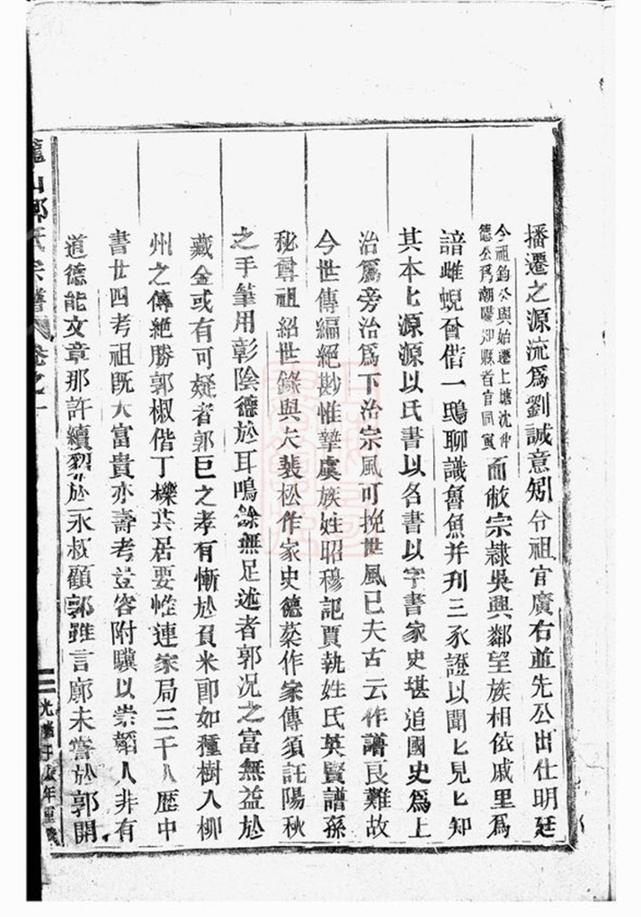 播遷之源流爲劉誠意矧兮祖官廣右並先公出仕明廷
兮祖鈞公與始遷上塘沈仲
德公爲潮陽知縣首官同寅
而敝宗隸吳興鄰望族相依戚里爲
諳雌蜺借一鴟聊識魯魚并刋三豕證以聞匕見匕知
其本匕源源以氏書以名書以字書家史堪追國史爲上
治爲旁治爲下治宗風可挽世風已夫古云作譜良難故
今世傳編絕尠惟摯虞族姓昭穆記賈執姓氏英賢譜孫
秘尊祖紹世錄與夫裴松作家史德棻作家傳須註陽秋
之手筆用彰陰德於耳鳴餘無足述者郭况之富無益於
藏金或有可疑者郭巨之孝有慚於負米卽如種樹入柳
州之傳絕勝郭椒偕丁櫟其居要惟連家局三千人歷中
書廿四考祖旣大富貴亦壽考豈容附驥以崇韜人非有
道德能文章那許續貂於永叔顧郭雖言廓未嘗於郭開
山郭氏宗譜 卷之一
光緒年重修